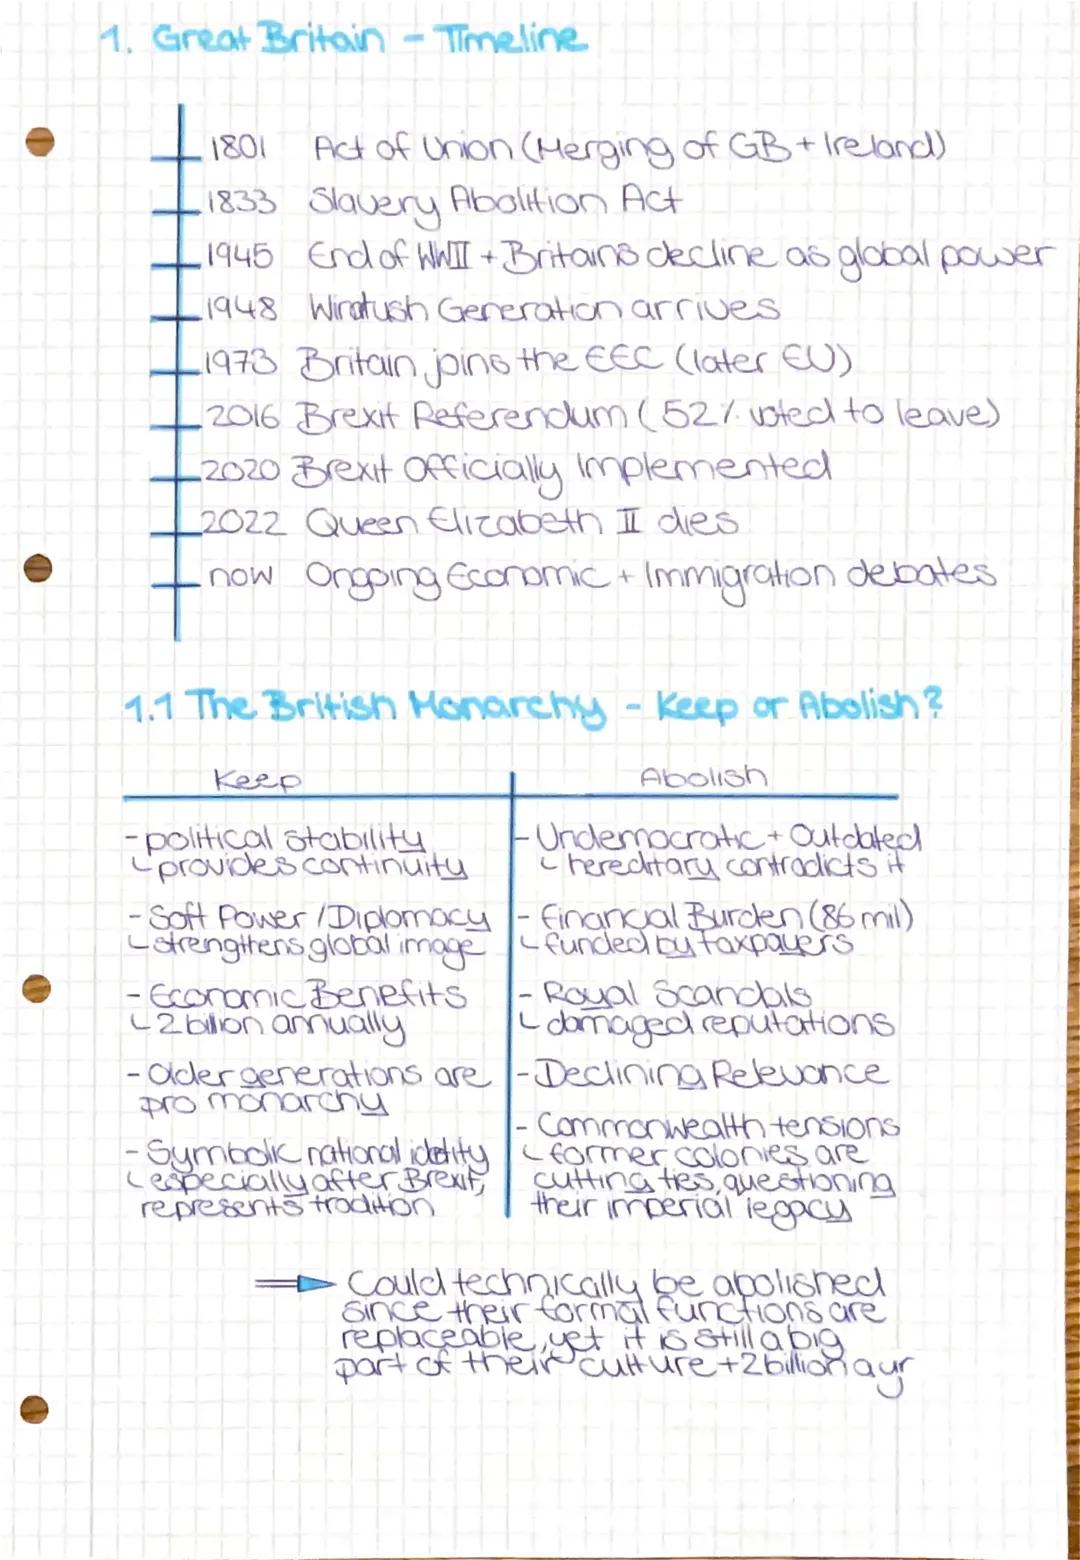 1. Great Britain - Timeline
1801 Act of Union (Merging of GB + Ireland)
1833 Slavery Abolition Act
1945 End of WWII + Britains decline as global power
1948 Windtush Generation arrives
1973 Britain joins the EEC (later EU)
2016 Brexit Referendum (52% voted to leave)
2020 Brexit Officially Implemented
2022 Queen Elizabeth II dies
now Ongoing Economic + Immigration debates
1.1 The British Monarchy - Keep or Abolish?
Keep
- political stability
↳ provides continuity
- Soft Power / Diplomacy
↳ strengthens global image
- Economic Benefits
↳ 2 billion annually
- Older generations are
pro monarchy
- Symbolic national identity
↳ especially after Brexit,
represents tradition
Abolish
- Undemocratic + Outdated
↳ hereditary contradicts it
- Financial Burden (86 mil)
↳ funded by taxpayers
- Royal Scandals
↳ damaged reputations
- Declining Relevance
- Commonwealth tensions
↳ former colonies are
cutting ties, questioning
their imperial legacy
⇒ Could technically be abolished
since their formal functions are
replaceable, yet it is still a big
part of their culture + 2 billion a yr